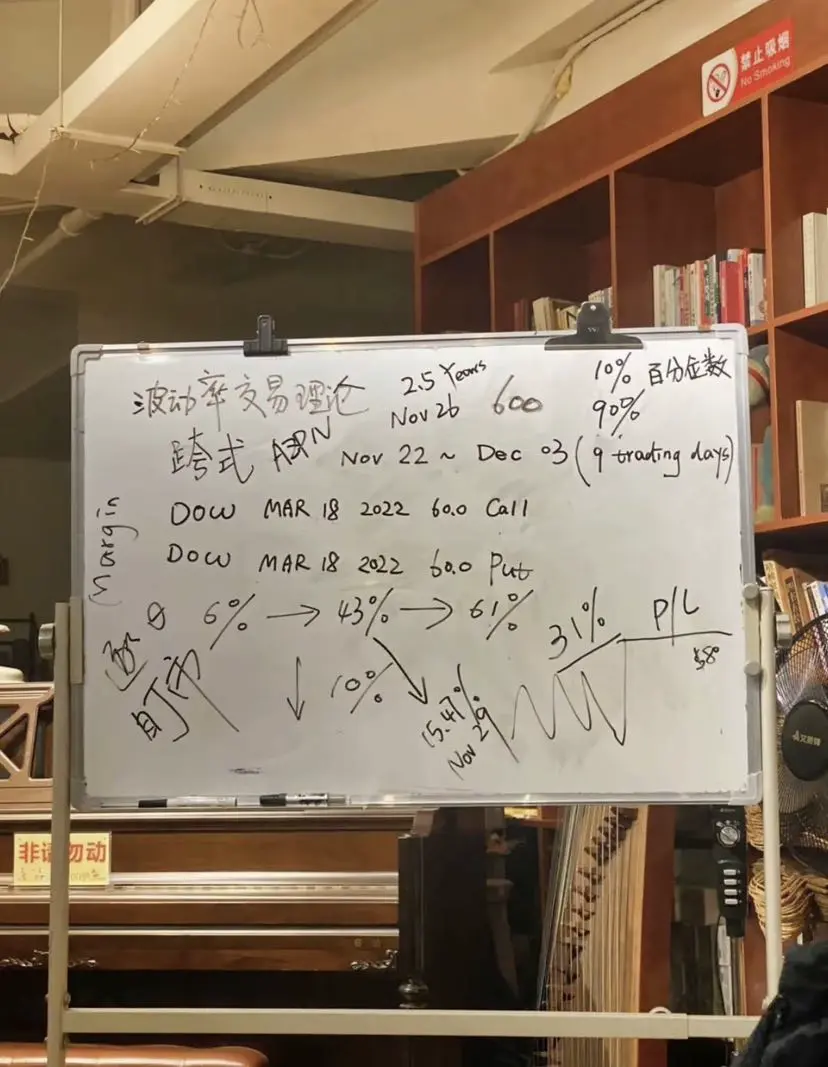 禁止吸烟
No Smoking
波动率交易理论 2.5 Years 10% 百分位数
Nov 26 600 90%
跨式 Nov 22 ~ Dec 03 (9 trading days)
Margin
DOW MAR 18 2022 60.0 Call
DOW MAR 18 2022 60.0 Put
6% → 43% → 61% 31% P/L
盯市 ↓ 10% 15.47% 58
Nov 29
非请勿动